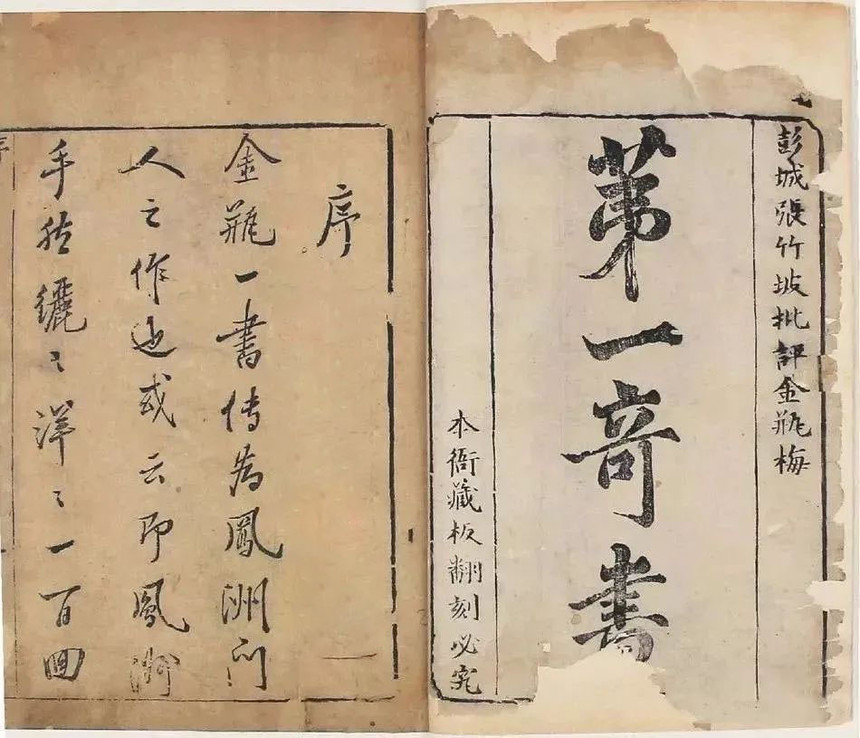 彭城張竹坡批評金瓶梅
第一奇書
本衙藏板翻刻必究
序
金瓶一書传為鳳洲门
人之作也或云即鳳洲
手然纚〻洋〻一百回